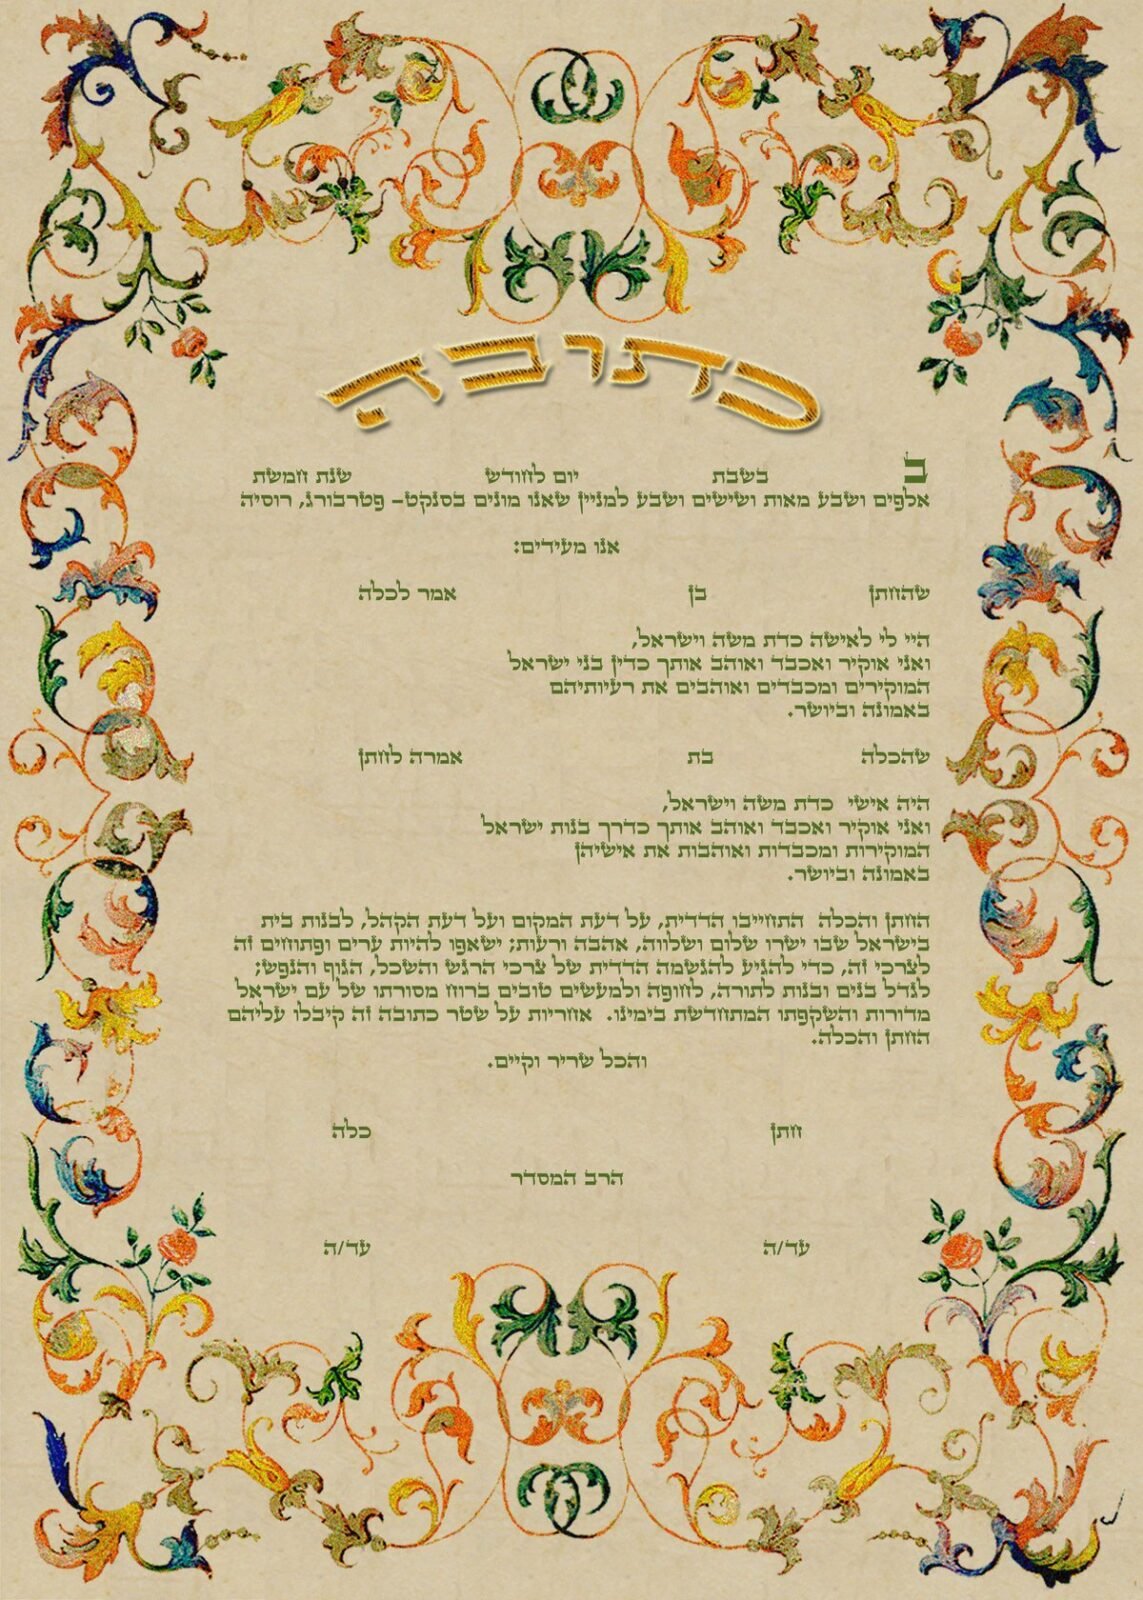 כתובה
ב בשבת יום לחודש שנת חמשת
אלפים ושבע מאות ושישים ושבע למניין שאנו מונים בסנקט- פטרבורג, רוסיה
אנו מעידים:
שהחתן בן אמר לכלה
היי לי לאישה כדת משה וישראל,
ואני אוקיר ואכבד ואוהב אותך כדין בני ישראל
המוקירים ומכבדים ואוהבים את רעיותיהם
באמונה וביושר.
שהכלה בת אמרה לחתן
היה אישי כדת משה וישראל,
ואני אוקיר ואכבד ואוהב אותך כדרך בנות ישראל
המוקירות ומכבדות ואוהבות את אישיהן
באמונה וביושר.
החתן והכלה התחייבו הדדית, על דעת המקום ועל דעת הקהל, לבנות בית
בישראל שבו ישרו שלום ושלווה, אהבה ורעות; ישאפו להיות ערים ופתוחים זה
לצרכי זה, כדי להגיע להגשמה הדדית של צרכי הרגש והשכל, הגוף והנפש;
לגדל בנים ובנות לתורה, לחופה ולמעשים טובים ברוח מסורתו של עם ישראל
מדורות והשקפתו המתחדשת בימינו. אחריות על שטר כתובה זה קיבלו עליהם
החתן והכלה.
והכל שריר וקיים.
חתן כלה
הרב המסדר
עד/ה עד/ה